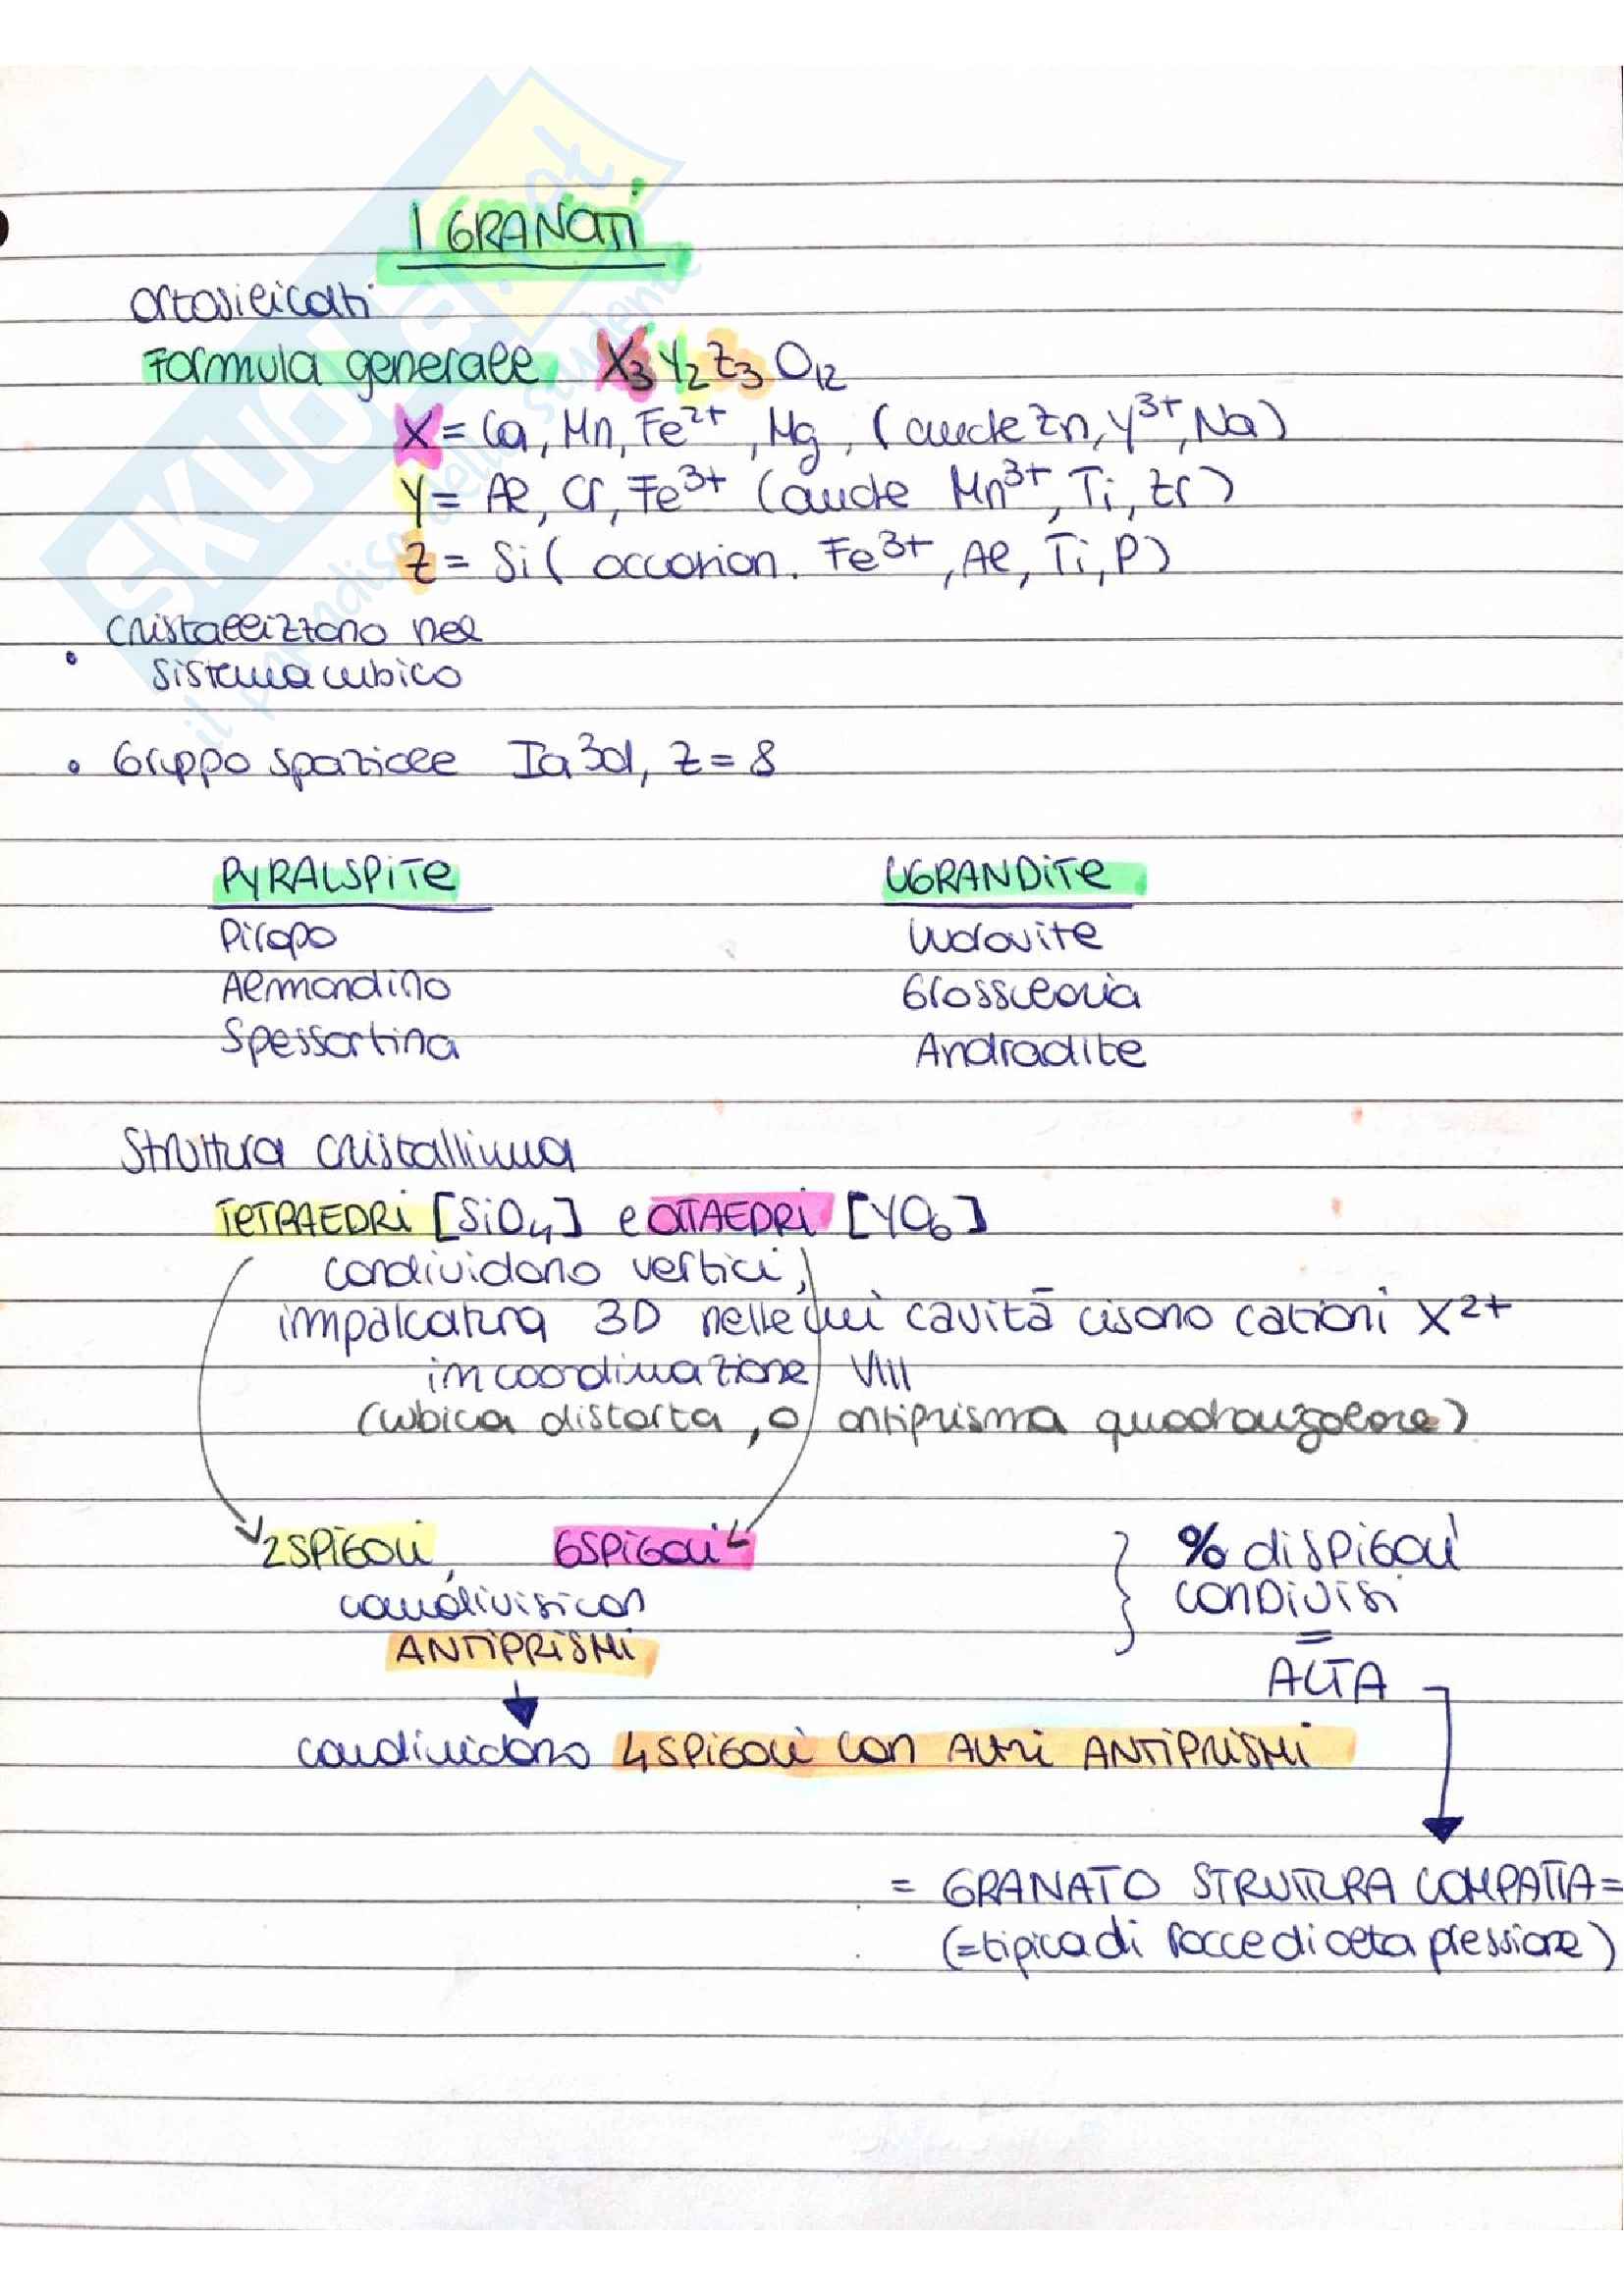 I GRANATI
Ortosilicati
Formula generale X3 Y2 Z3 O12
X = Ca, Mn, Fe2+, Mg, (anche Zn, Y3+, Na)
Y = Al, Cr, Fe3+ (anche Mn3+, Ti, Zr)
Z = Si ( occasion. Fe3+, Al, Ti, P)
• cristallizzano nel
sistema cubico
• Gruppo spaziale Ia3d, Z = 8
PYRALSPITE UGRANDITE
Piropo Uvarovite
Almandino Grossularia
Spessartina Andradite
Struttura cristallina
TETRAEDRI [SiO4] e OTTAEDRI [YO6]
condividono vertici,
impalcatura 3D nelle cui cavità ci sono cationi X2+
in coordinazione VIII
(cubica distorta, o antiprisma quadrangolare)
2 SPIGOLI, 6 SPIGOLI } % di SPIGOLI
condivisi con CONDIVISI
ANTIPRISMI =
ALTA
condividono 4 SPIGOLI CON ALTRI ANTIPRISMI
= GRANATO STRUTTURA COMPATTA =
(= tipica di rocce di alta pressione)
SKUOLA.net
il paradiso dello studente